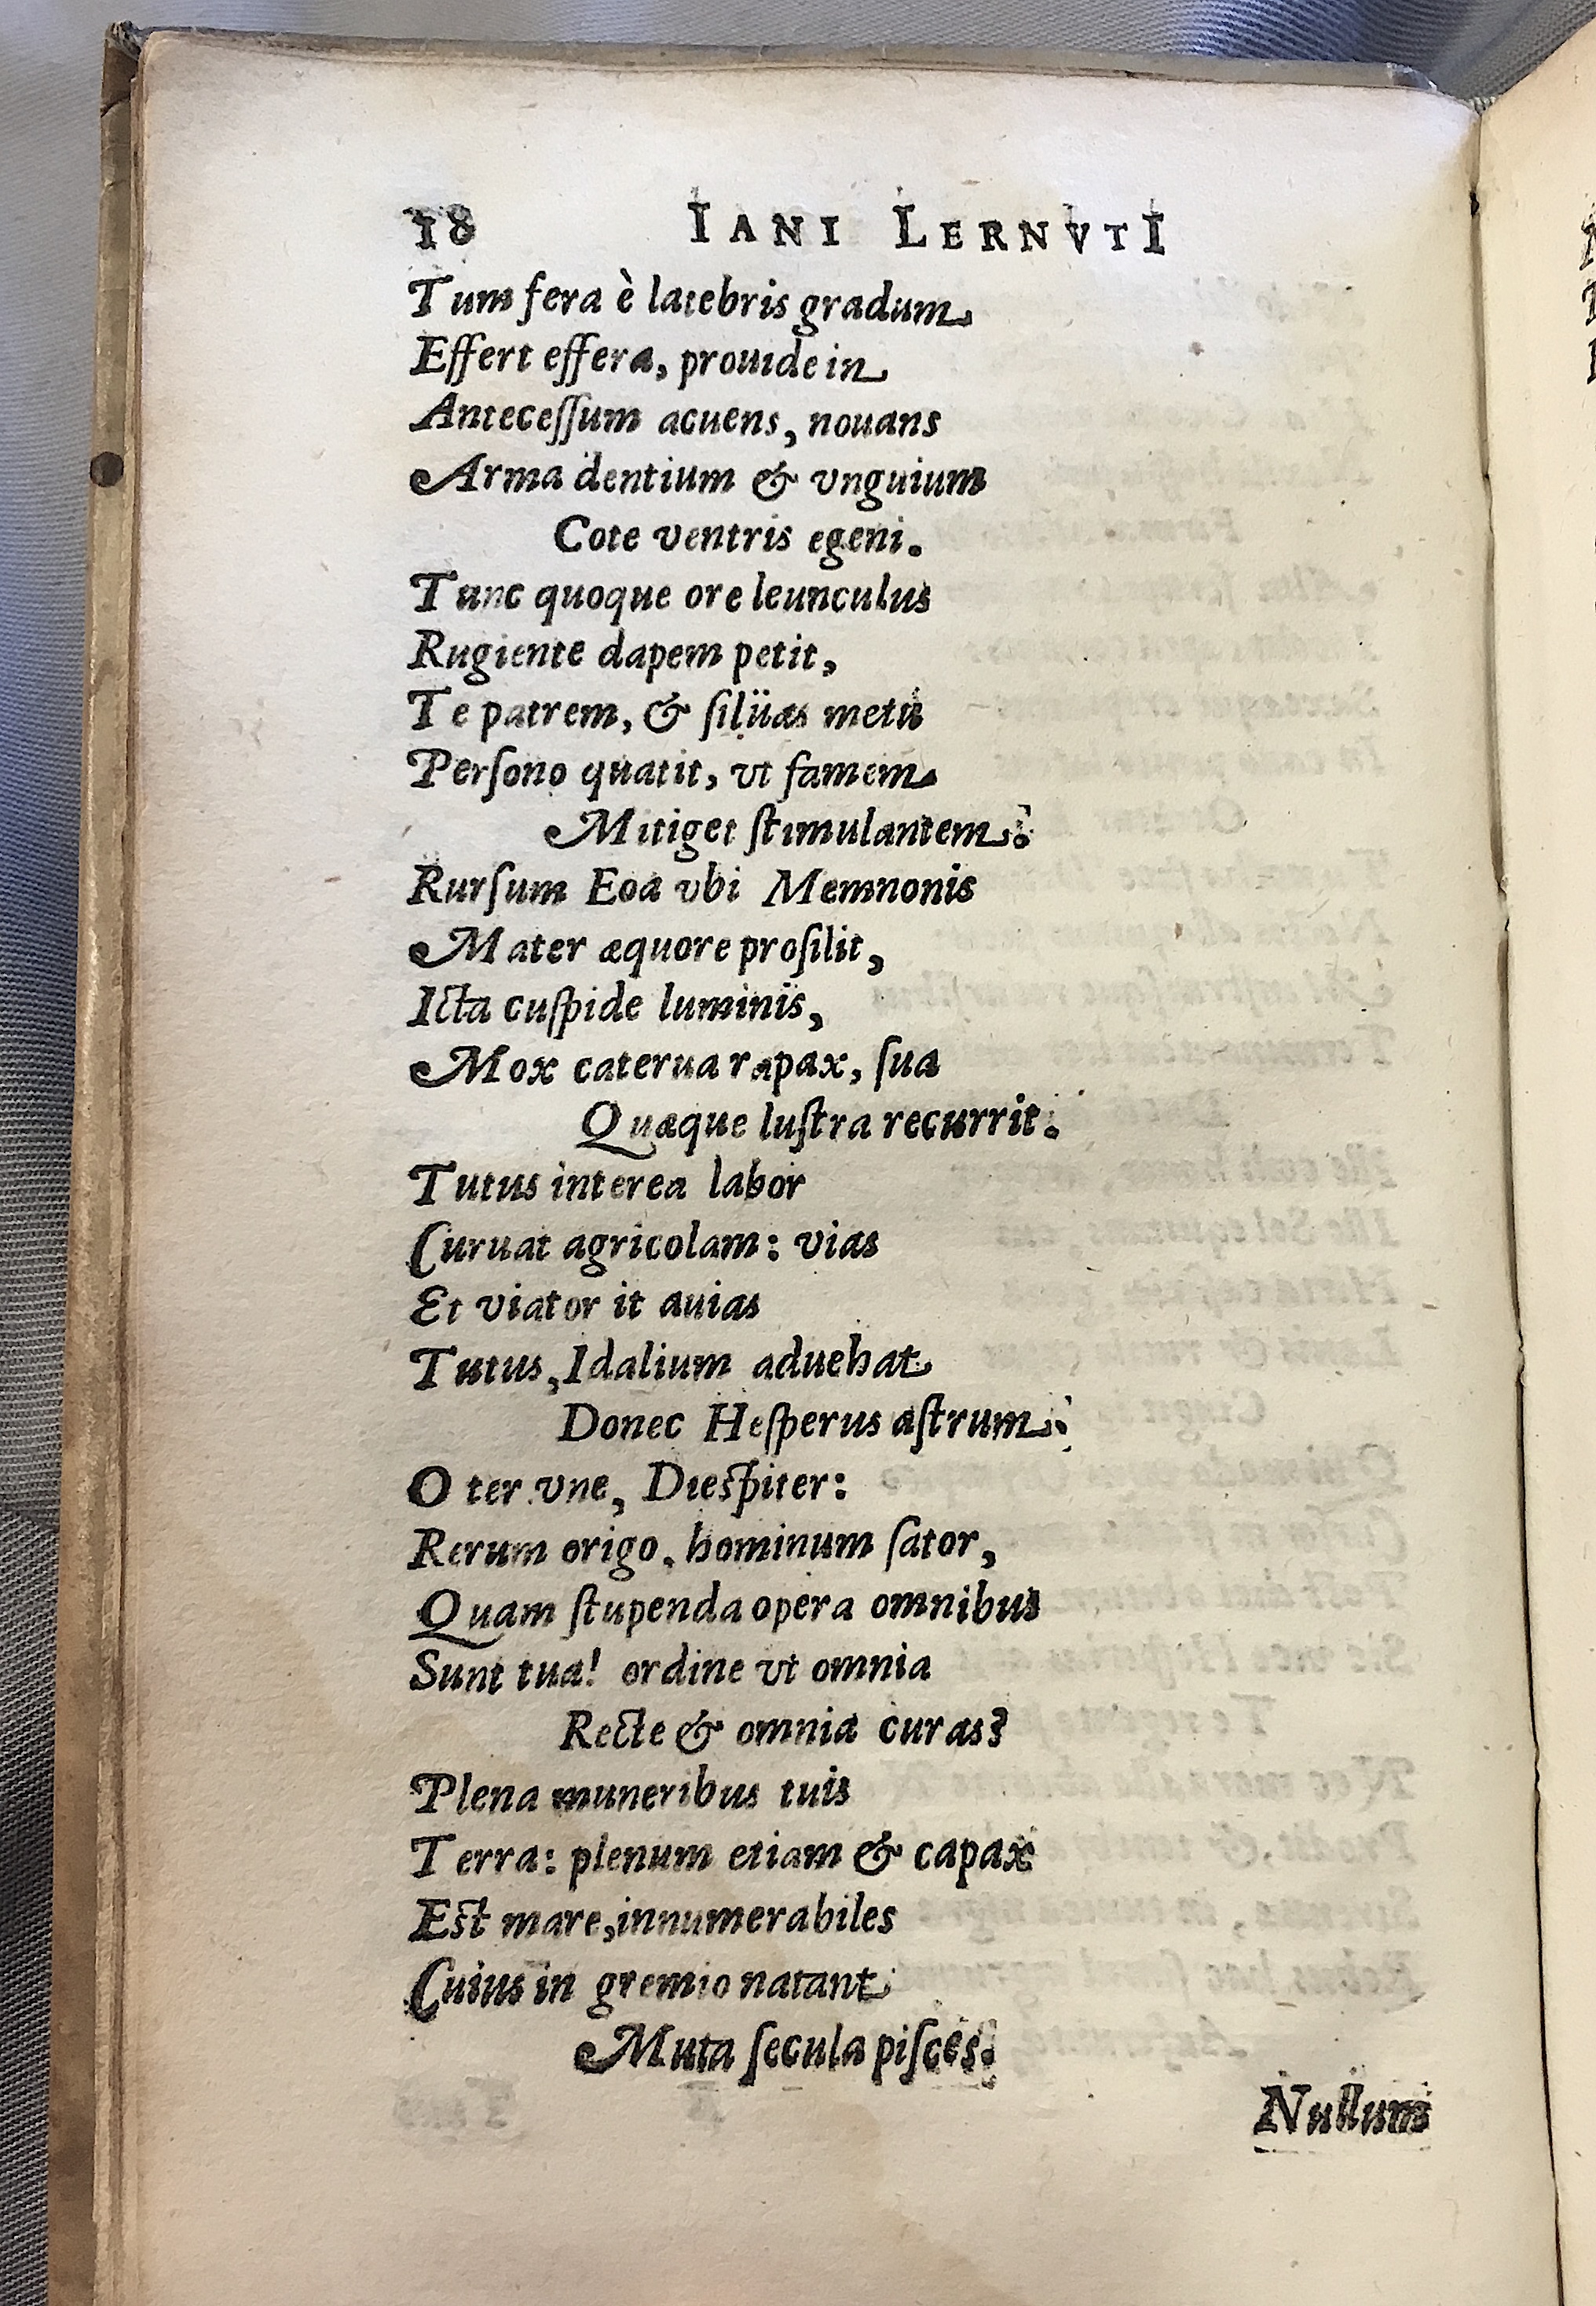 18 IANI LERNVTI
Tum fera è latebris gradum
Effert effera, prouide in
Antecessum acuens, nouans
Arma dentium & vnguium
Cote ventris egeni.
Tunc quoque ore leunculus
Rugiente dapem petit,
Te patrem, & silüas metu
Persono quatit, vt famem
Mitiget stimulantem.
Rursum Eoa vbi Memnonis
Mater æquore prosilit,
Icta cuspide luminis,
Mox caterua rapax, sua
Quæque lustra recurrit.
Tutus interea labor
Curuat agricolam: vias
Et viator it auias
Tutus, Idalium aduehat
Donec Hesperus astrum.
O ter vne, Diespiter:
Rerum origo, hominum sator,
Quam stupenda opera omnibus
Sunt tua! ordine vt omnia
Recte & omnia curas?
Plena muneribus tuis
Terra: plenum etiam & capax
Est mare, innumerabiles
Cuius in gremio natant
Muta secula pisces.
Nullum